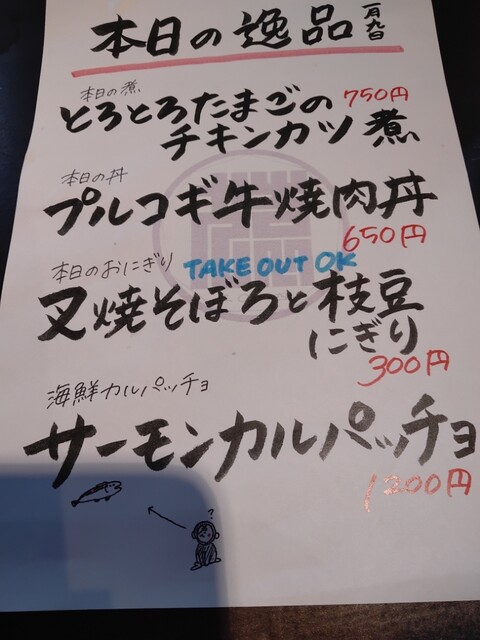 本日の逸品
一月九日
本日の煮
とろとろたまごの
750円
チキンカツ煮
本日の丼
プルコギ牛焼肉丼
650円
本日のおにぎり
TAKE OUT OK
叉焼そぼろと枝豆
にぎり
300円
海鮮カルパッチョ
サーモンカルパッチョ
1200円
?